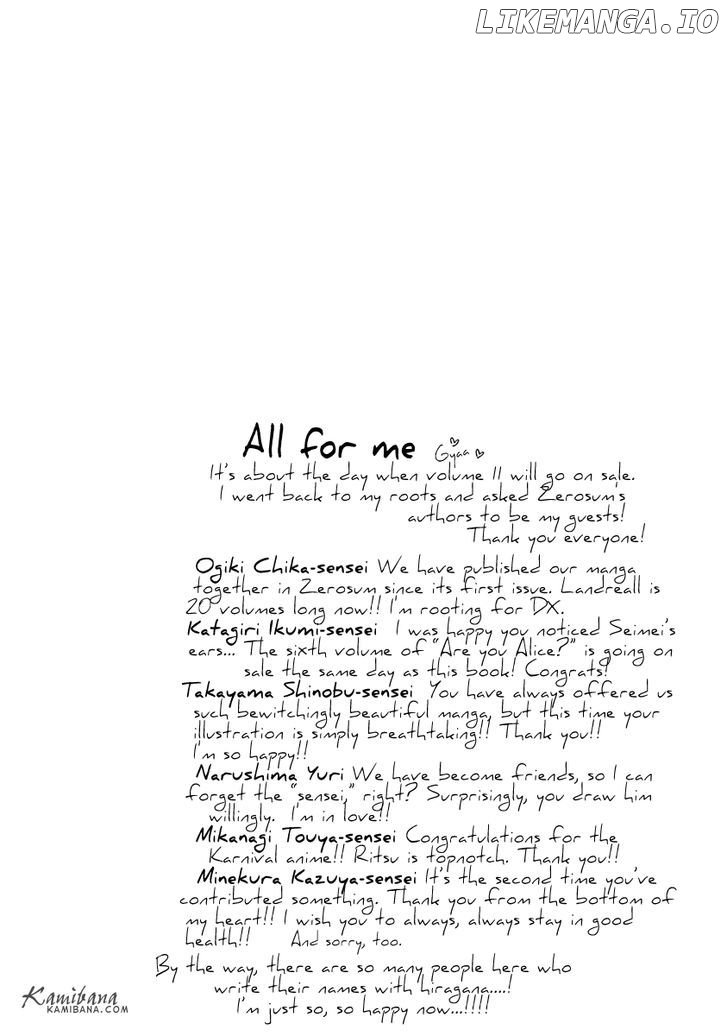 LIKEMANGA.IO
All for me Gyaa
It's about the day when volume 11 will go on sale.
I went back to my roots and asked Zerosum's
authors to be my guests!
Thank you everyone!
Ogiki Chika-sensei We have published our manga
together in Zerosum since its first issue. Landreall is
20 volumes long now!! I'm rooting for DX.
Katagiri Ikumi-sensei I was happy you noticed Seimei's
ears... The sixth volume of "Are you Alice?" is going on
sale the same day as this book! Congrats!
Takayama Shinobu-sensei You have always offered us
such bewitchingly beautiful manga, but this time your
illustration is simply breathtaking!! Thank you!!
I'm so happy!!
Narushima Yuri We have become friends, so I can
forget the "sensei," right? Surprisingly, you draw him
willingly. I'm in love!!
Mikanagi Touya-sensei Congratulations for the
Karnival anime!! Ritsu is topnotch. Thank you!!
Minekura Kazuya-sensei It's the second time you've
contributed something. Thank you from the bottom of
my heart!! I wish you to always, always stay in good
health!! And sorry, too.
By the way, there are so many people here who
write their names with hiragana....!
I'm just so, so happy now...!!!!
Kamibana
KAMIBANA.COM